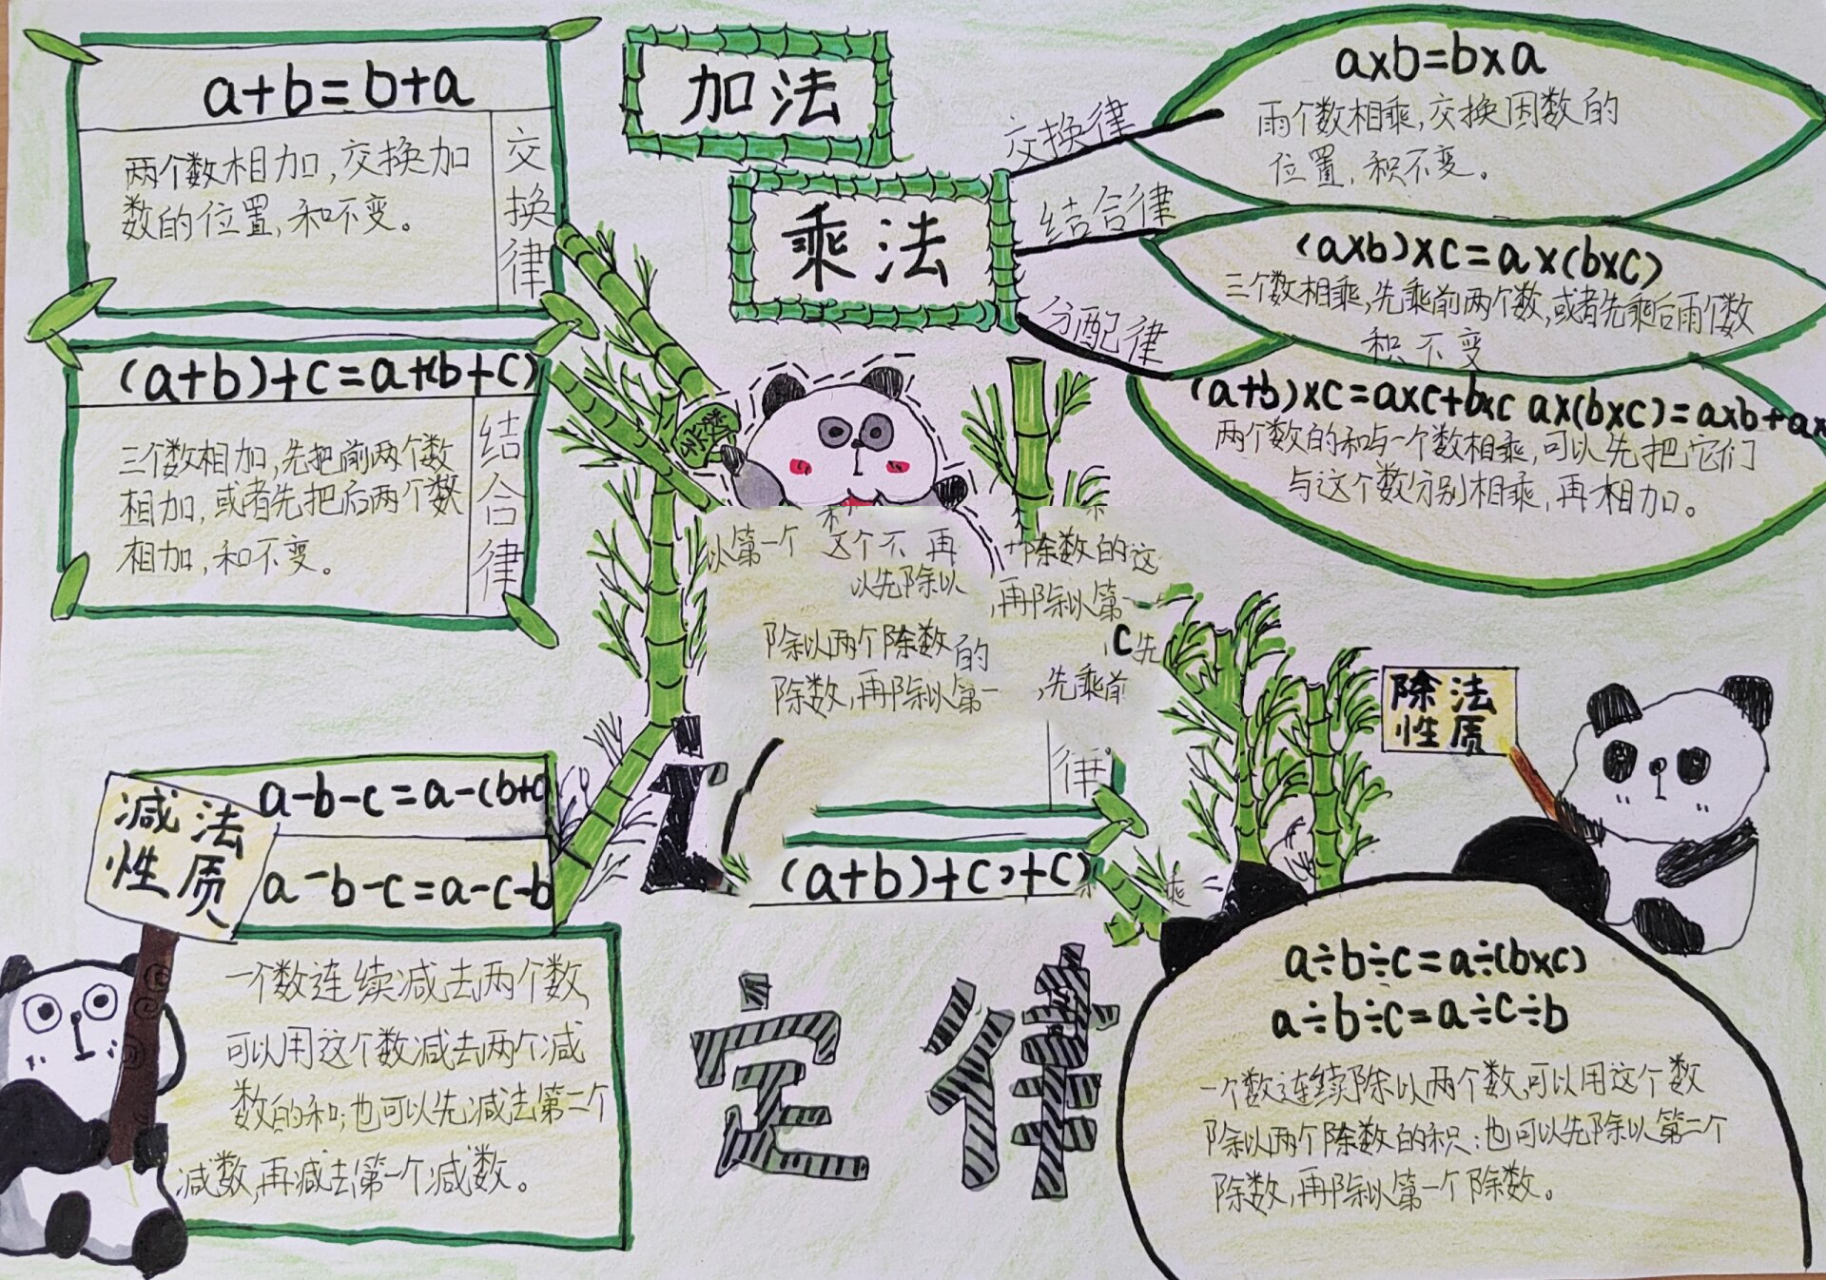 a+b=b+a
两个数相加,交换加
数的位置,和不变。
交换律
(a+b)+c=a+(b+c)
三个数相加,先把前两个数
相加,或者先把后两个数
相加,和不变。
结合律
加法
乘法
交换律
a×b=b×a
两个数相乘,交换因数的
位置,积不变。
结合律
(a×b)×c=a×(b×c)
三个数相乘,先乘前两个数,或者先乘后两个数
积不变
分配律
(a+b)×c=a×c+b×c a×(b×c)=a×b+a×
两个数的和与一个数相乘,可以先把它们
与这个数分别相乘,再相加。
以第一个 这个不 再
以先除以
除数的这
,再除以第一
除以两个除数的
除数,再除以第一
c先
,先乘前
律
(a+b)+c +c)
减法
性质
a-b-c=a-(b+c
a-b-c=a-c-b
一个数连续减去两个数,
可以用这个数减去两个减
数的和;也可以先减去第二个
减数,再减去第一个减数。
定律
除法
性质
a÷b÷c=a÷(b×c)
a÷b÷c=a÷c÷b
一个数连续除以两个数,可以用这个数
除以两个除数的积;也可以先除以第二个
除数,再除以第一个除数。